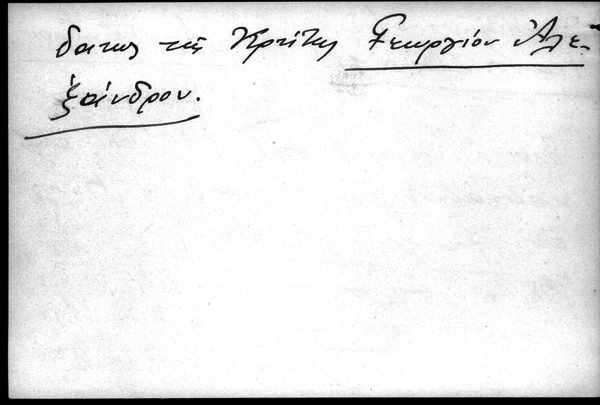 δατος τῆς Κρήτης Γεωργίου Ἀλε-
ξάνδρου.